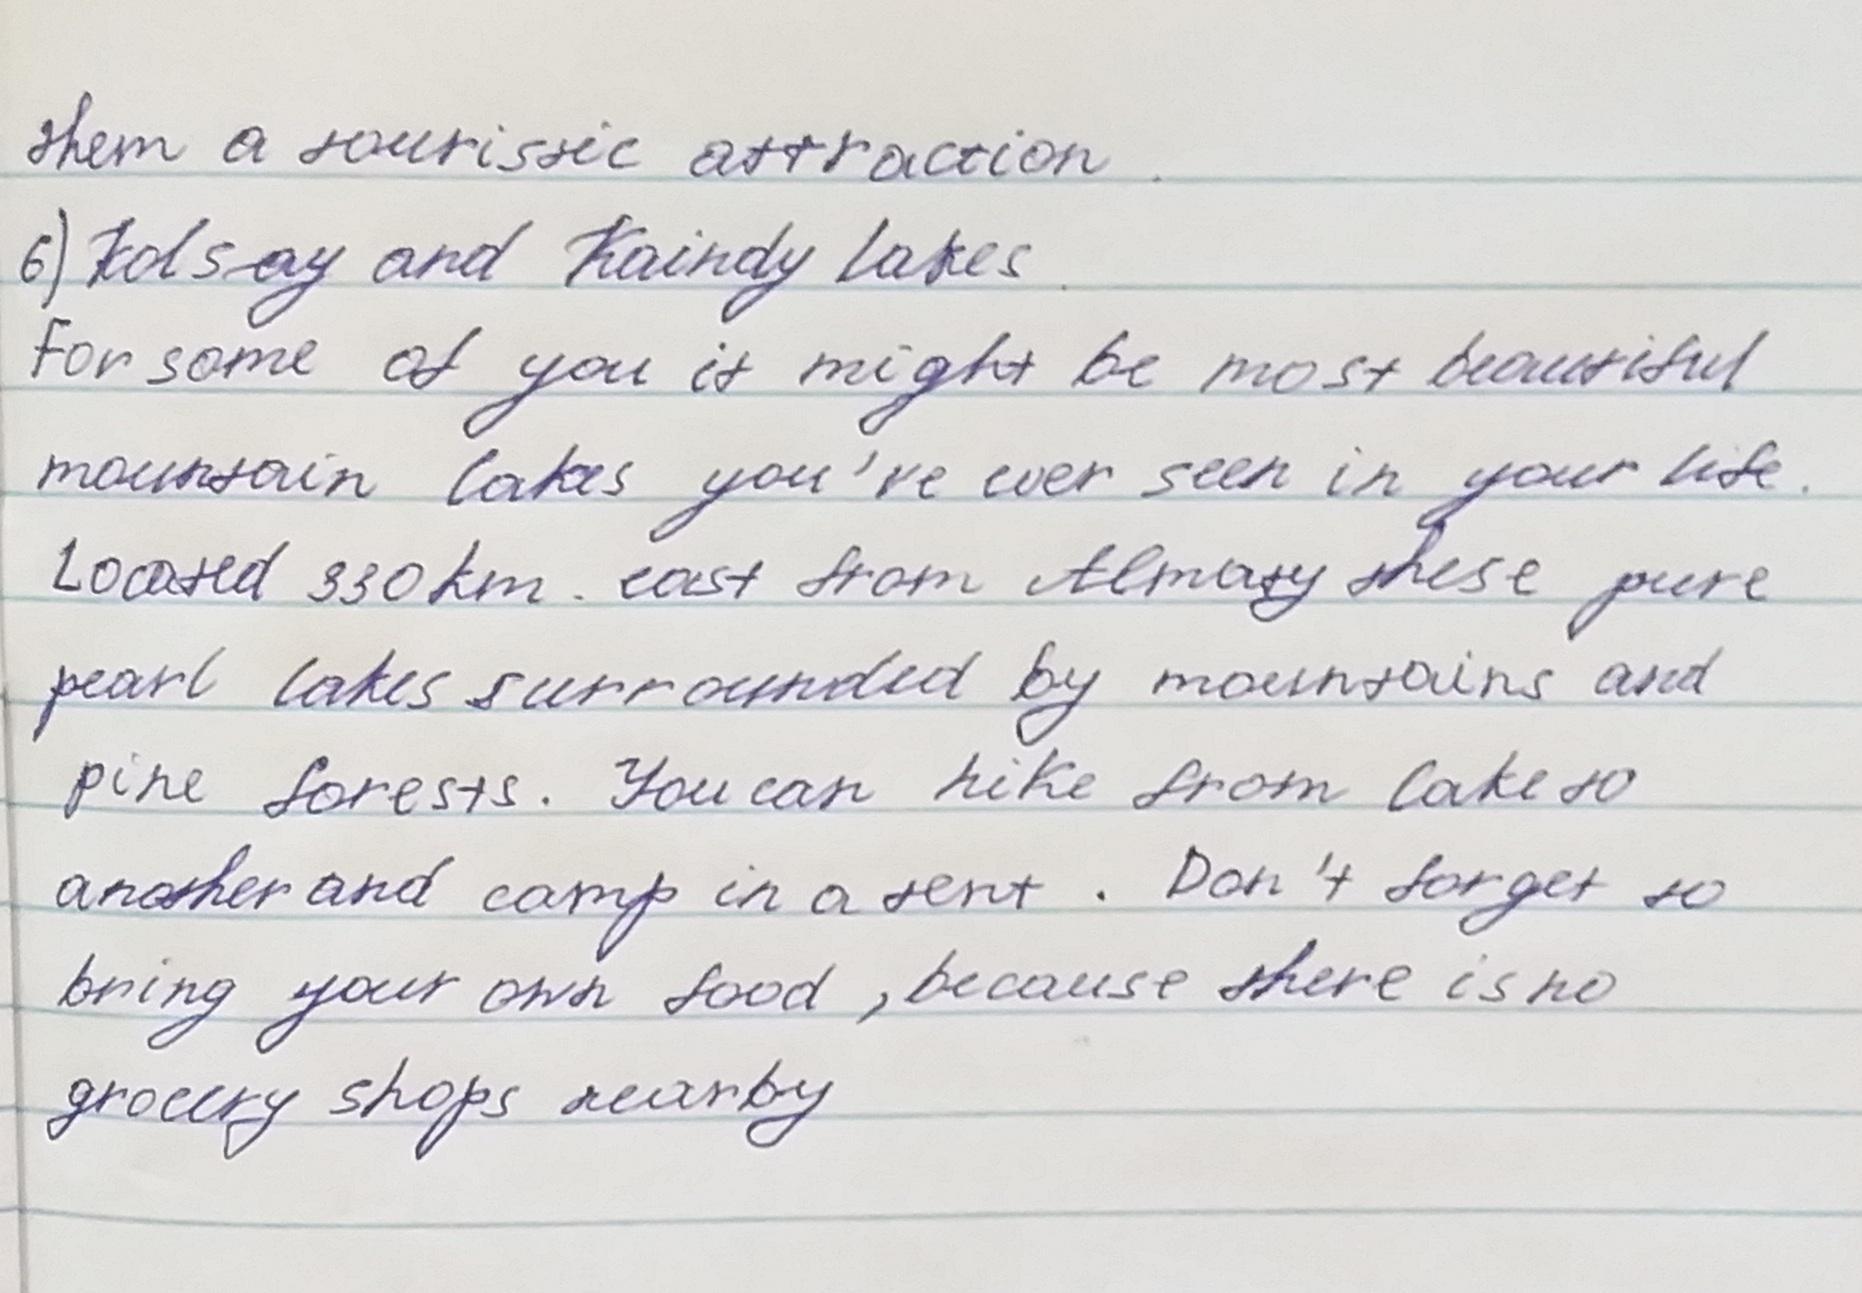 them a touristic attraction.
6) Kolsay and Kaindy lakes.
For some of you it might be most beautiful
mountain lakes you've ever seen in your life.
Located 330 km. east from Almaty these pure
pearl lakes surrounded by mountains and
pine forests. You can hike from lake to
another and camp in a tent. Don't forget to
bring your own food, because there is no
grocery shops nearby